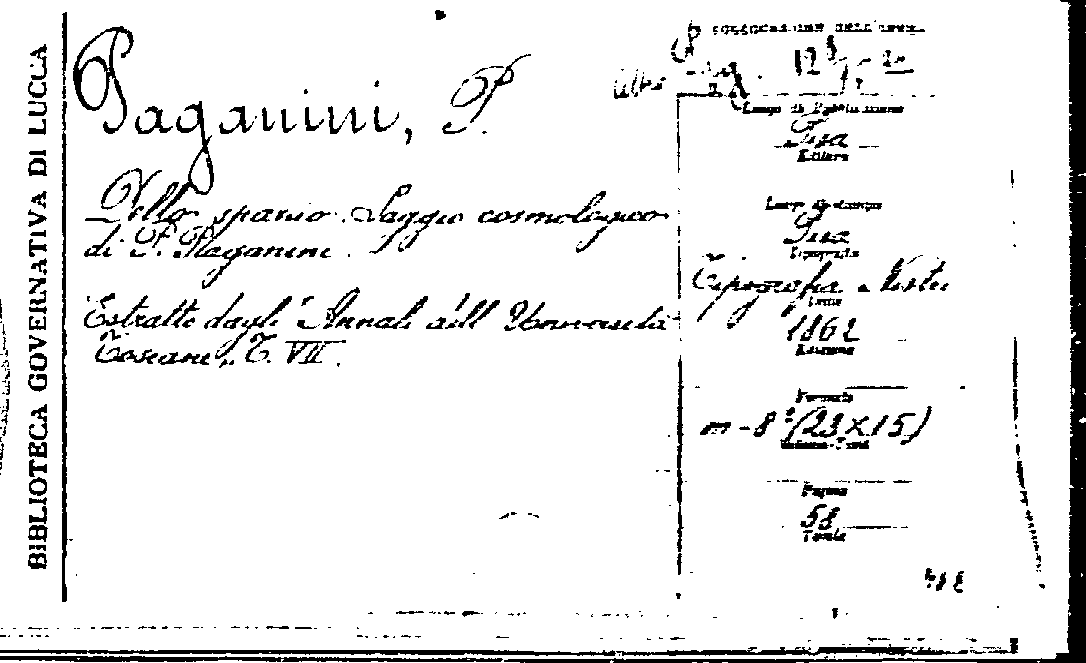 BIBLIOTECA GOVERNATIVA DI LUCCA
Paganini, P.
Dello spazio. Saggio cosmologico
di P. Paganini.
Estratto dagli "Annali dell' Università
Toscane", T. VII.
COLLOCAZIONE DELL'OPERA
Luogo di Pubblicazione
Pisa
Editore
Luogo di stampa
Pisa
Tipografia
Tipografia Nistri
Anno
1862
Edizione
Formato
in-8° (23×15)
Pagine
58
Tavole